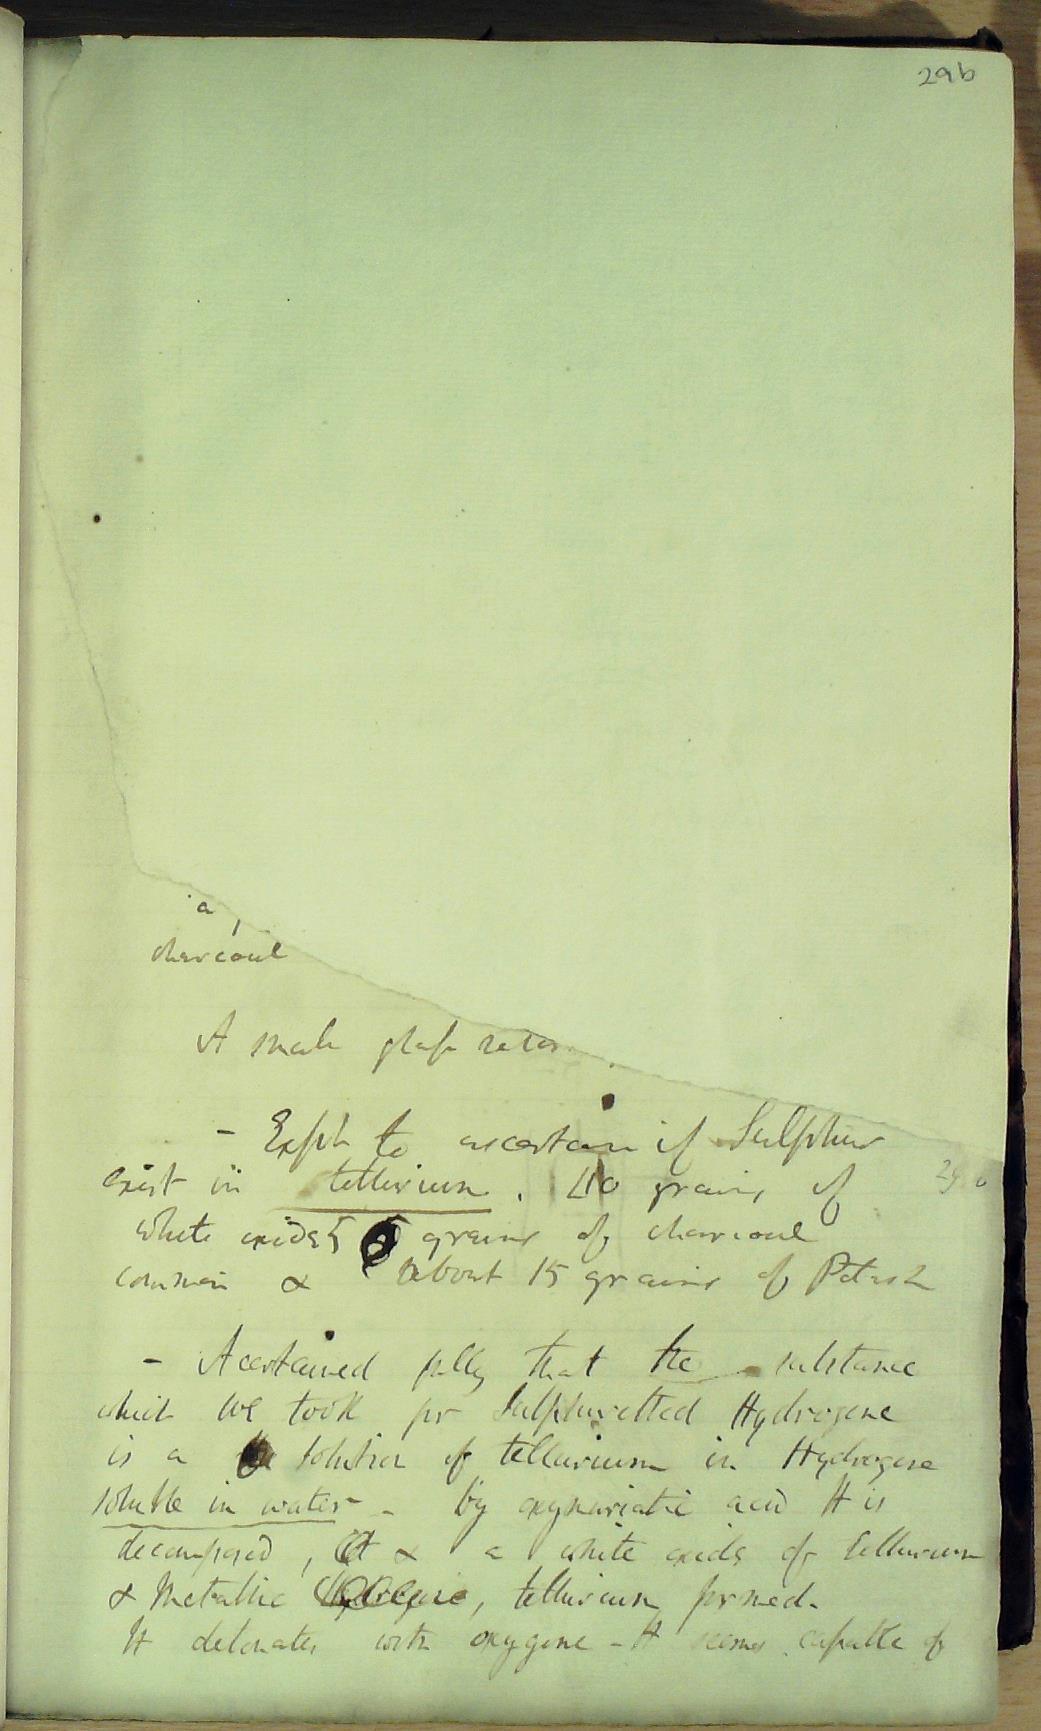 29b
a
charcoal
A small glass retor
- Expt to ascertain if Sulphur
exist in tellurium. 40 grains of
29 b
white oxide 5 grains of charcoal
common & about 15 grains of Potash
- Acertained fully that the substance
which we took for Sulphuretted Hydrogene
is a solution of tellurium in Hydrogene
soluble in water - by oxymuriatic acid It is
decomposed, & a white oxide of tellurium
& Metallic tellurium formed.
It detonates with oxygene - It seems capable of